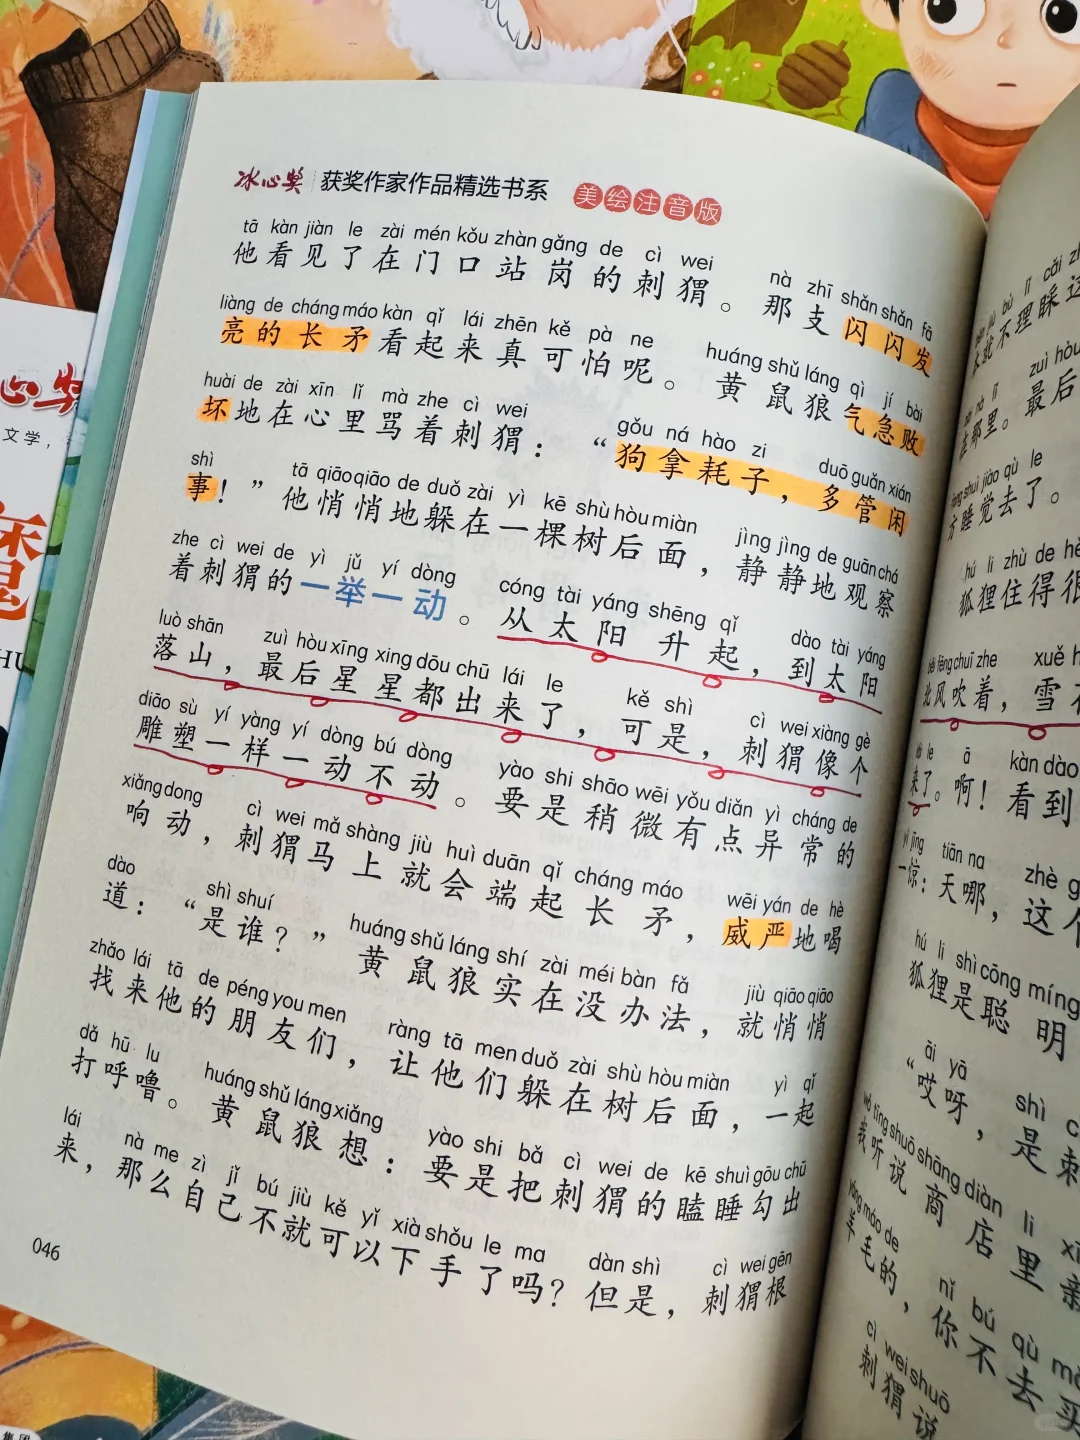 冰心奖 获奖作家作品精选书系 美绘注音版
tā kàn jiàn le zài mén kǒu zhàn gǎng de cì wei nà zhī shǎn shǎn fā
他看见了在门口站岗的刺猬。那支闪闪发
liàng de cháng máo kàn qǐ lái zhēn kě pà ne huáng shǔ láng qì jí bài
亮的长矛看起来真可怕呢。黄鼠狼气急败
huài de zài xīn lǐ mà zhe cì wei gǒu ná hào zi duō guǎn xián
坏地在心里骂着刺猬：“狗拿耗子，多管闲
shì tā qiāo qiāo de duǒ zài yì kē shù hòu miàn jìng jìng de guān chá
事！”他悄悄地躲在一棵树后面，静静地观察
zhe cì wei de yì jǔ yí dòng cóng tài yáng shēng qǐ dào tài yáng
着刺猬的一举一动。从太阳升起，到太阳
luò shān zuì hòu xīng xing dōu chū lái le kě shì cì wei xiàng gè
落山，最后星星都出来了，可是，刺猬像个
diāo sù yí yàng yí dòng bú dòng yào shi shāo wēi yǒu diǎn yì cháng de
雕塑一样一动不动。要是稍微有点异常的
xiǎng dong cì wei mǎ shàng jiù huì duān qǐ cháng máo wēi yán de hè
响动，刺猬马上就会端起长矛，威严地喝
dào shì shuí huáng shǔ láng shí zài méi bàn fǎ jiù qiāo qiāo
道：“是谁？”黄鼠狼实在没办法，就悄悄
zhǎo lái tā de péng you men ràng tā men duǒ zài shù hòu miàn yì qǐ
找来他的朋友们，让他们躲在树后面，一起
dǎ hū lu huáng shǔ láng xiǎng yào shi bǎ cì wei de kē shuì gōu chū
打呼噜。黄鼠狼想：要是把刺猬的瞌睡勾出
lái nà me zì jǐ bú jiù kě yǐ xià shǒu le ma dàn shì cì wei gēn
来，那么自己不就可以下手了吗？但是，刺猬根
046
本就不理睬这
zuì hòu
在那里。最后
jiào qù le
方睡觉去了。
hú li zhù de
狐狸住得很
běi fēng chuī zhe xuě
北风吹着，雪
le ā kàn dào
来了。啊！看到
yì jīng tiān na zhè
一惊：天哪，这个
hú li shì cōng míng
狐狸是聪明
āi yā shì
“哎呀，是刺
wǒ tīng shuō shāng diàn li
我听说商店里新
yáng máo de nǐ bú qù
羊毛的，你不去买
cì wei shuō
刺猬说
心奖
文学，
魔
集团